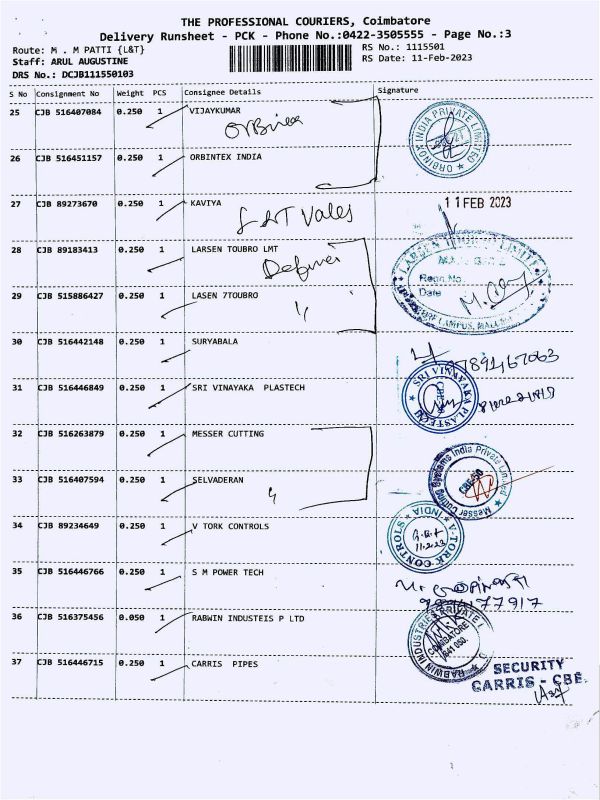 THE PROFESSIONAL COURIERS, Coimbatore
Delivery Runsheet - PCK - Phone No.:0422-3505555 - Page No.:3
Route: M . M PATTI {L&T} RS No.: 1115501
Staff: ARUL AUGUSTINE RS Date: 11-Feb-2023
DRS No.: DCJB111550103
S No Consignment No Weight PCS Consignee Details Signature
25 CJB 516407084 0.250 1 VIJAYKUMAR
ORBINOX INDIA PRIVATE LIMITED
26 CJB 516451157 0.250 1 ORBINTEX INDIA
27 CJB 89273670 0.250 1 KAVIYA 11 FEB 2023
L&T Valves
28 CJB 89183413 0.250 1 LARSEN TOUBRO LMT
LARSEN TOUBRO LIMITED
Date
29 CJB 515886427 0.250 1 LASEN 7TOUBRO
30 CJB 516442148 0.250 1 SURYABALA
31 CJB 516446849 0.250 1 SRI VINAYAKA PLASTECH
SRI VINAYAKA PLASTECH
32 CJB 516263879 0.250 1 MESSER CUTTING
Messer Cutting Systems India Private Limited
33 CJB 516407594 0.250 1 SELVADERAN
34 CJB 89234649 0.250 1 V TORK CONTROLS
V-TORK CONTROLS INDIA
11.2.23
35 CJB 516446766 0.250 1 S M POWER TECH
36 CJB 516375456 0.050 1 RABWIN INDUSTEIS P LTD
RABWIN INDUSTRIES PRIVATE
COIMBATORE
641 050.
37 CJB 516446715 0.250 1 CARRIS PIPES
SECURITY
CARRIS - CBE.